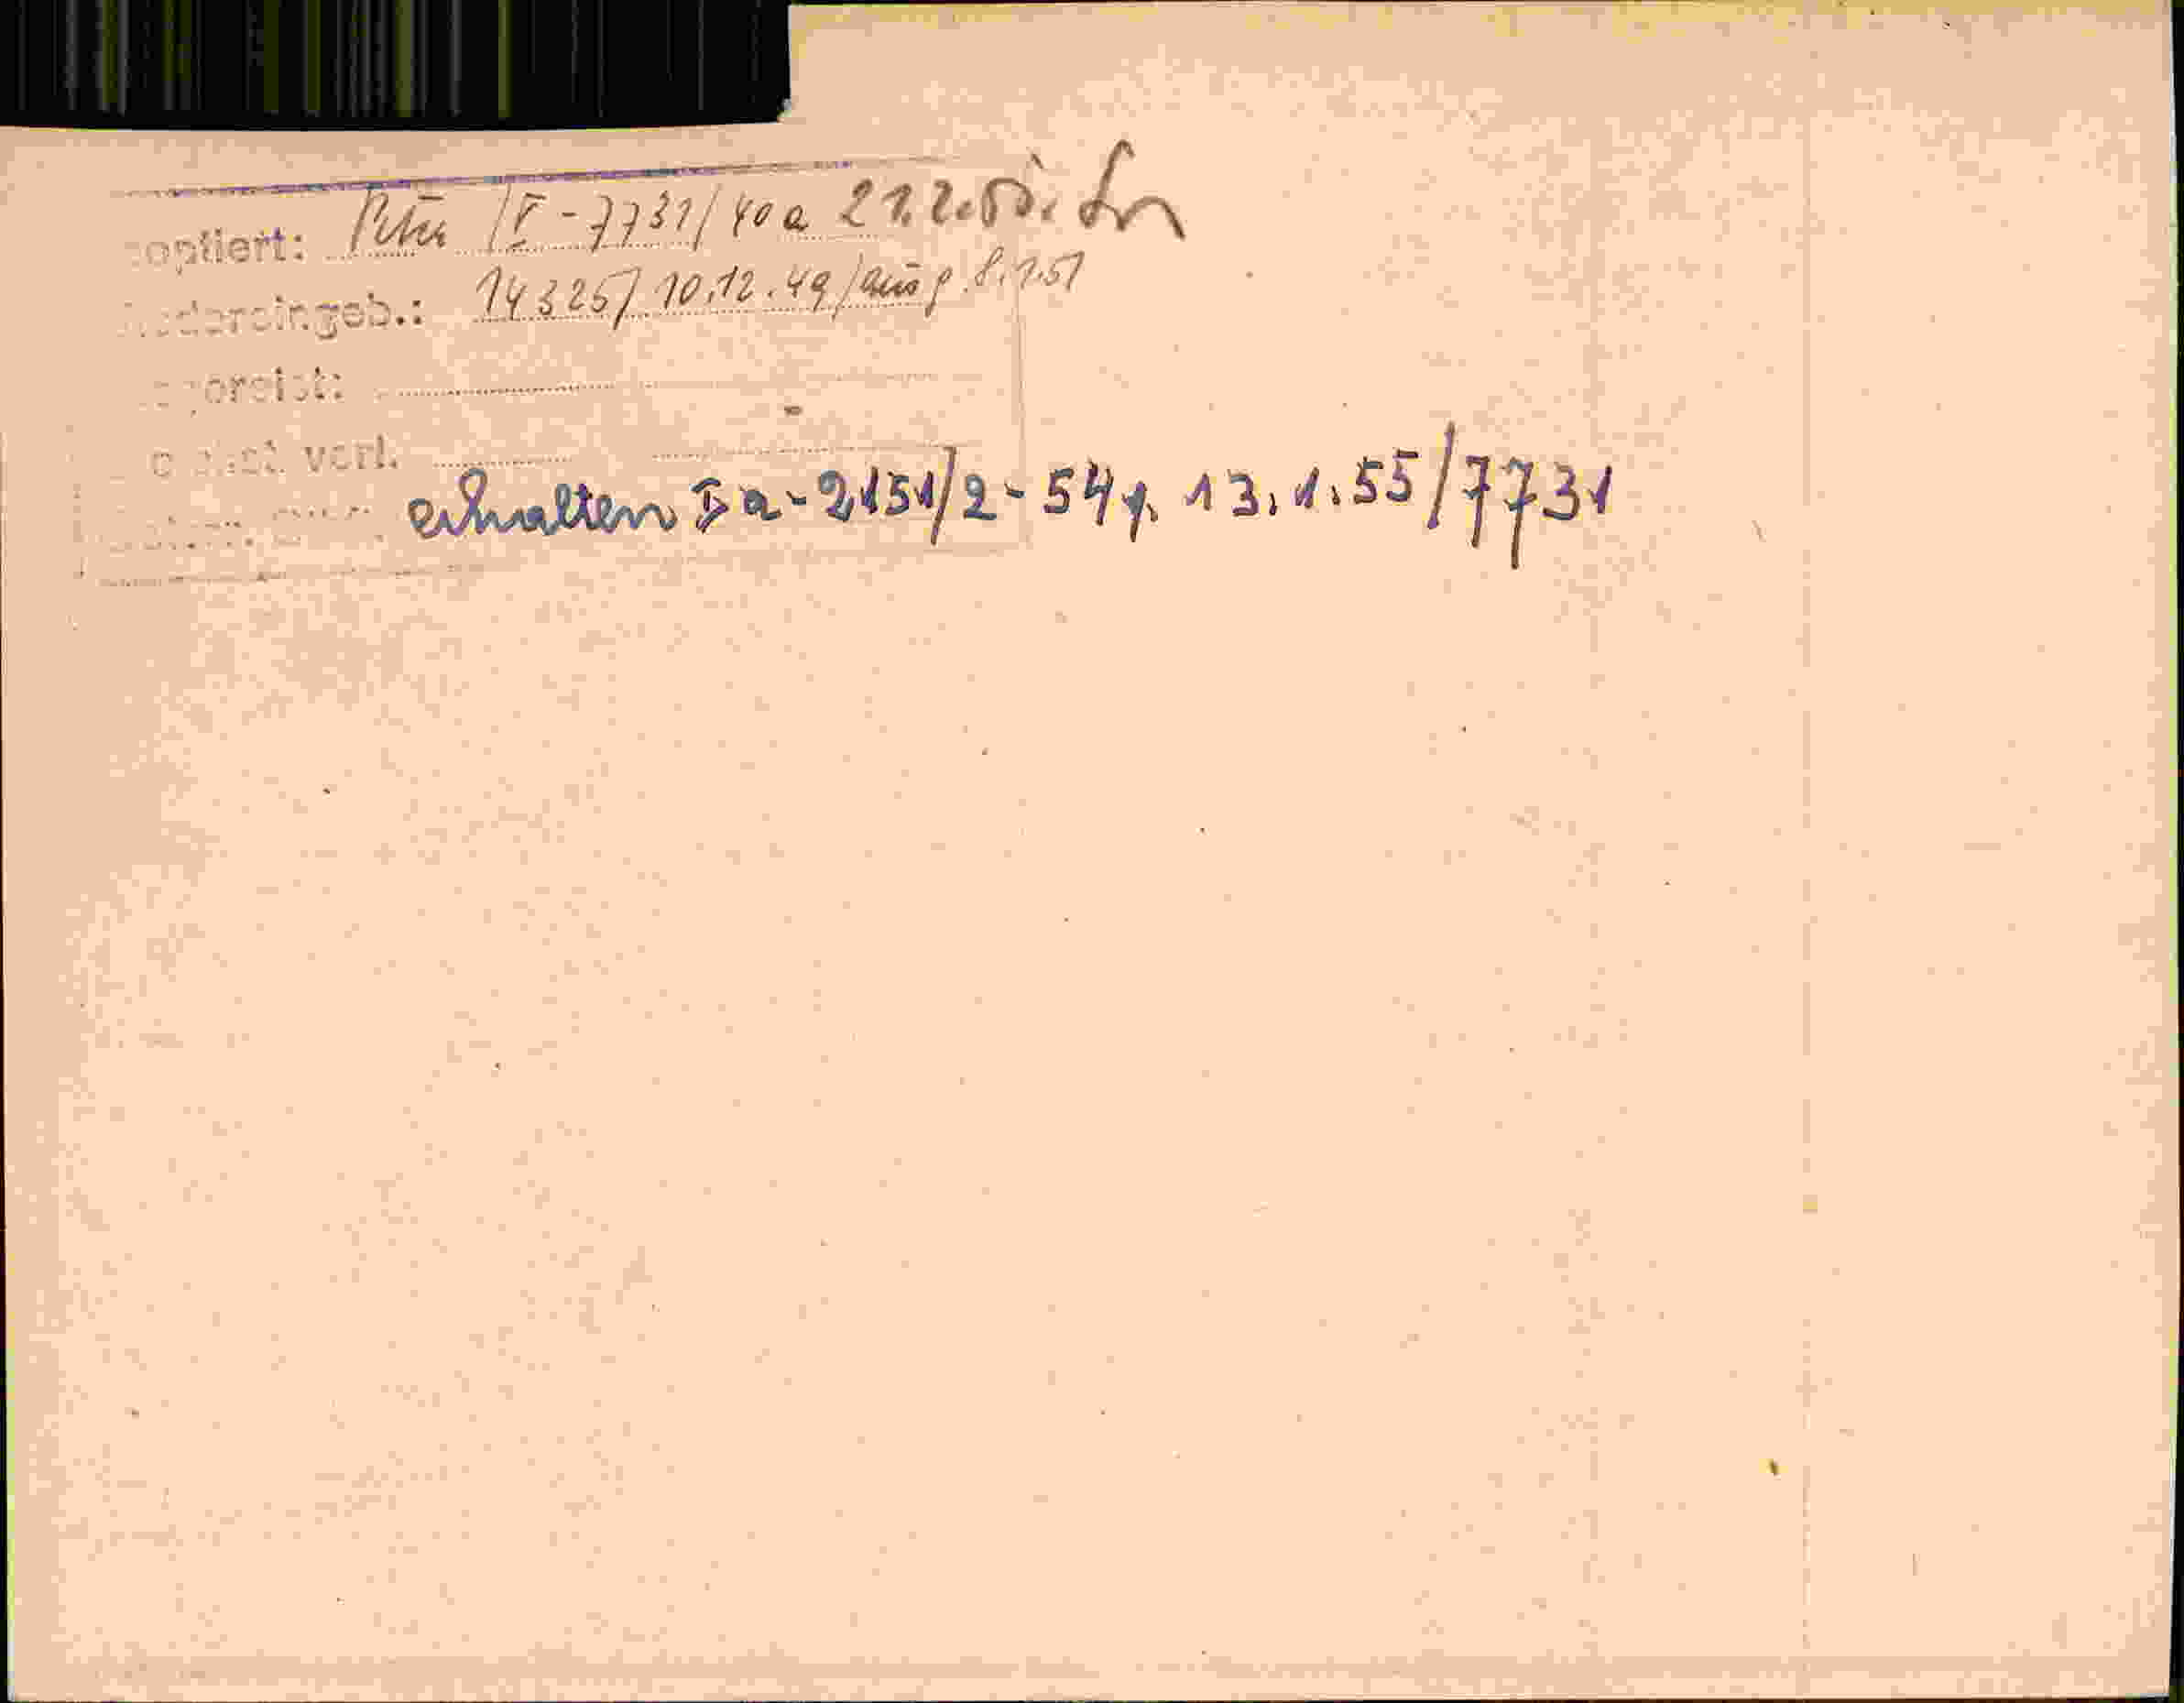 optiert: I - 7731/40a 21.2.50.
edereingeb.: 14325/ 10.12.49/ausg. 8.1.51
gereist:
verl.
erhalten I a - 2151/2 - 54 p. 13.1.55/7731